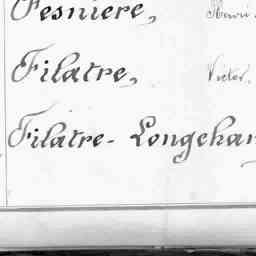 Fesniere, Henri.
Filatre, Victor.
Filatre- Longcham